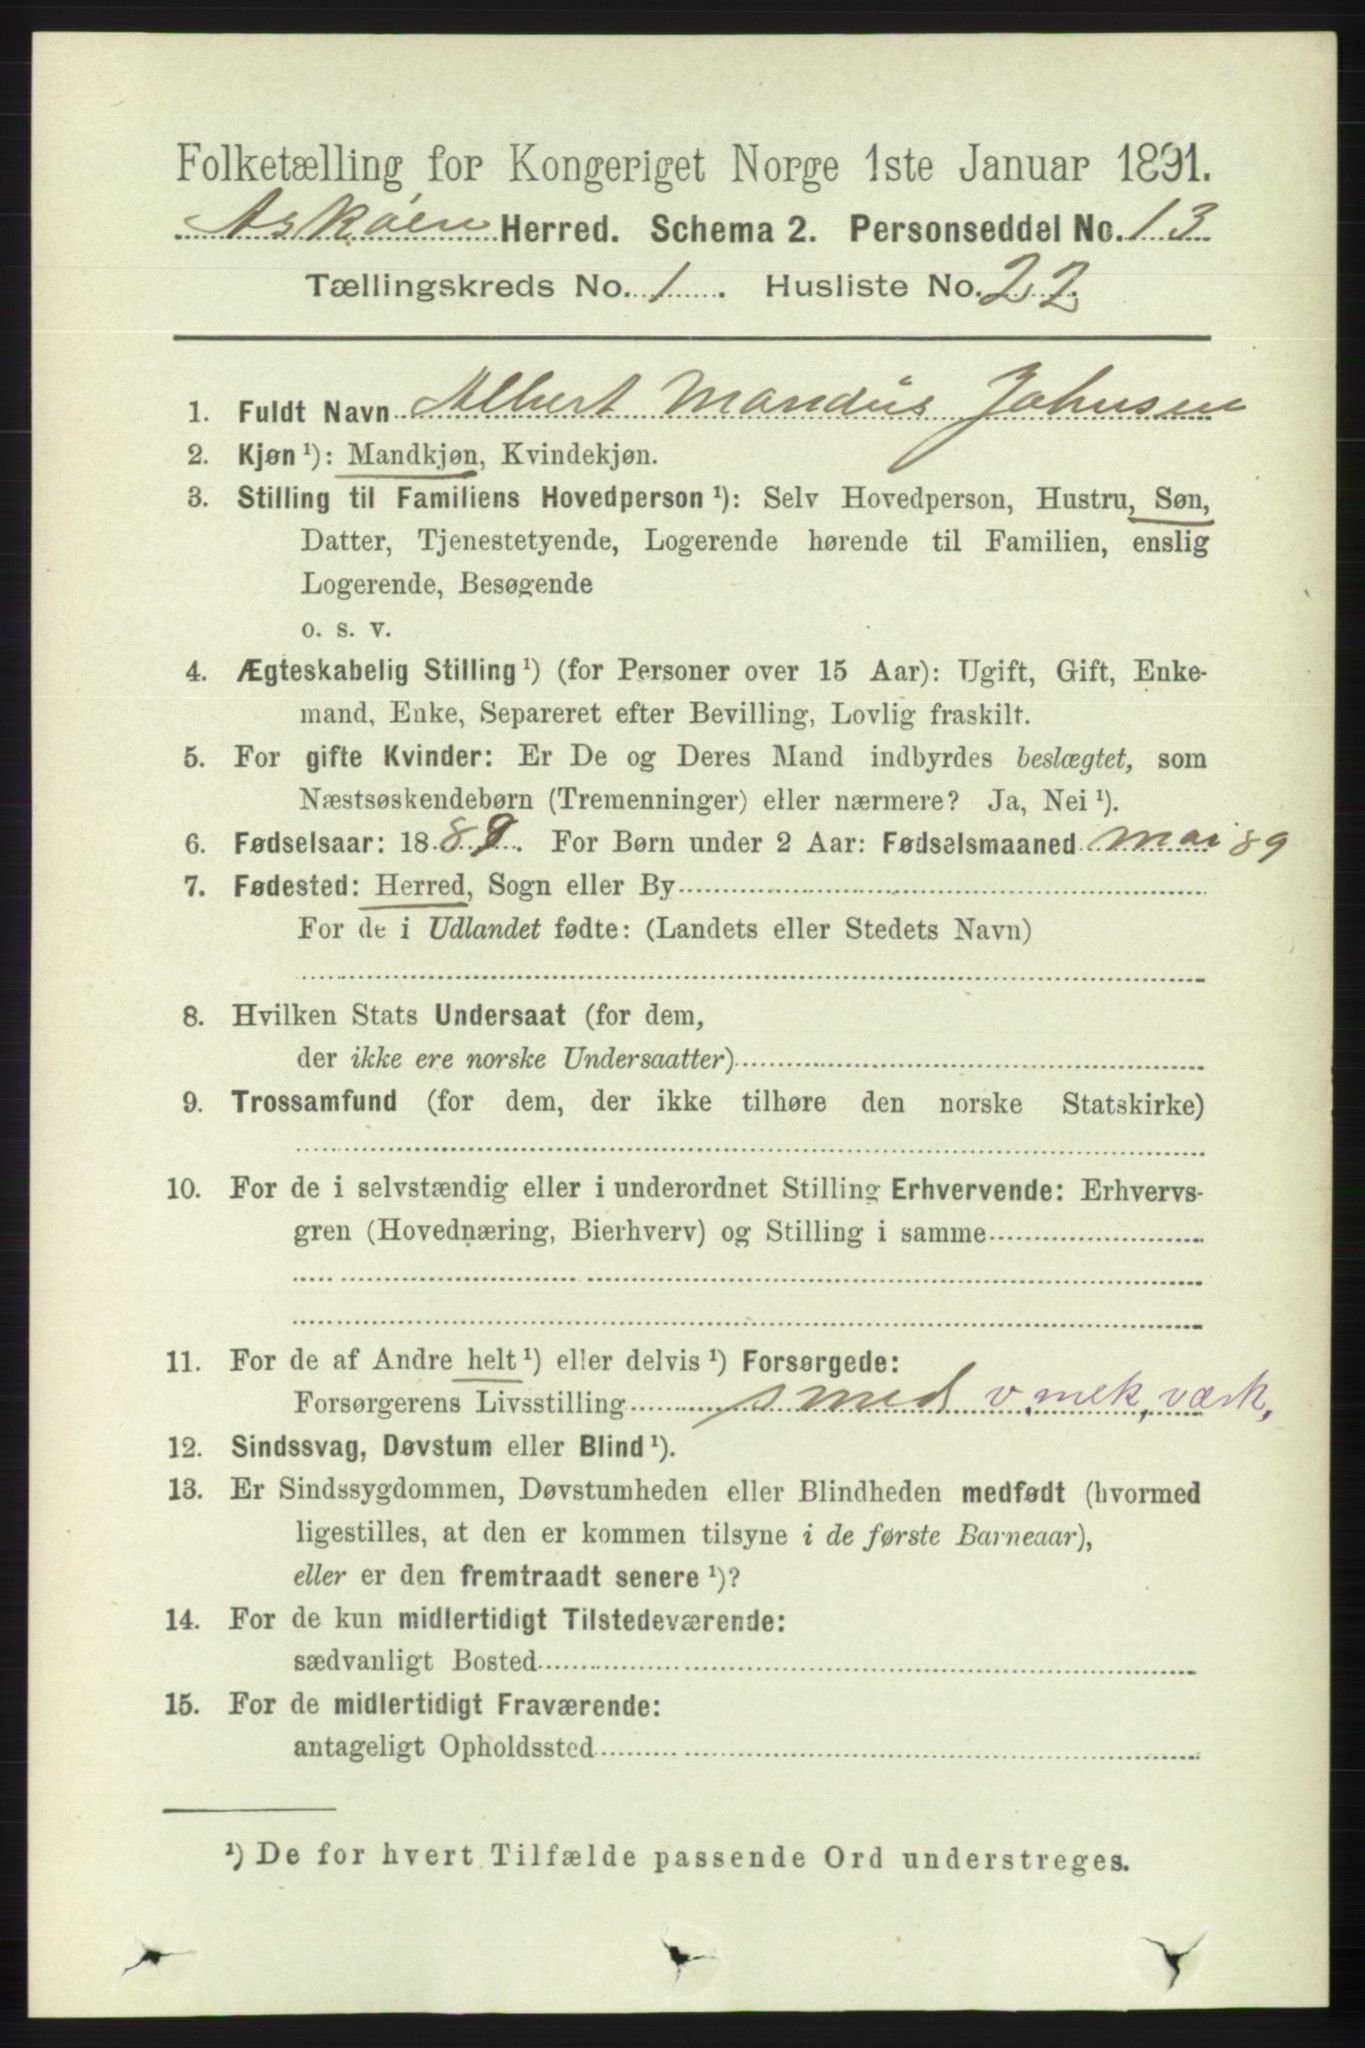 Folketælling for Kongeriget Norge 1ste Januar 1891.
Askøen Herred. Schema 2. Personseddel No. 13
Tællingskreds No. 1. Husliste No. 22
1. Fuldt Navn Albert Mandius Johnsen
2. Kjøn ¹): Mandkjøn, Kvindekjøn.
3. Stilling til Familiens Hovedperson ¹): Selv Hovedperson, Hustru, Søn,
Datter, Tjenestetyende, Logerende hørende til Familien, enslig
Logerende, Besøgende
o. s. v.
4. Ægteskabelig Stilling ¹) (for Personer over 15 Aar): Ugift, Gift, Enke-
mand, Enke, Separeret efter Bevilling, Lovlig fraskilt.
5. For gifte Kvinder: Er De og Deres Mand indbyrdes beslægtet, som
Næstsøskendebørn (Tremenninger) eller nærmere? Ja, Nei ¹).
6. Fødselsaar: 1889. For Børn under 2 Aar: Fødselsmaaned mai 89
7. Fødested: Herred, Sogn eller By
For de i Udlandet fødte: (Landets eller Stedets Navn)
8. Hvilken Stats Undersaat (for dem,
der ikke ere norske Undersaatter)
9. Trossamfund (for dem, der ikke tilhøre den norske Statskirke)
10. For de i selvstændig eller i underordnet Stilling Erhvervende: Erhvervs-
gren (Hovednæring, Bierhverv) og Stilling i samme
11. For de af Andre helt ¹) eller delvis ¹) Forsørgede:
Forsørgerens Livsstilling smed v. mek. værk,
12. Sindssvag, Døvstum eller Blind ¹).
13. Er Sindssygdommen, Døvstumheden eller Blindheden medfødt (hvormed
ligestilles, at den er kommen tilsyne i de første Barneaar),
eller er den fremtraadt senere ¹)?
14. For de kun midlertidigt Tilstedeværende:
sædvanligt Bosted
15. For de midlertidigt Fraværende:
antageligt Opholdssted
¹) De for hvert Tilfælde passende Ord understreges.